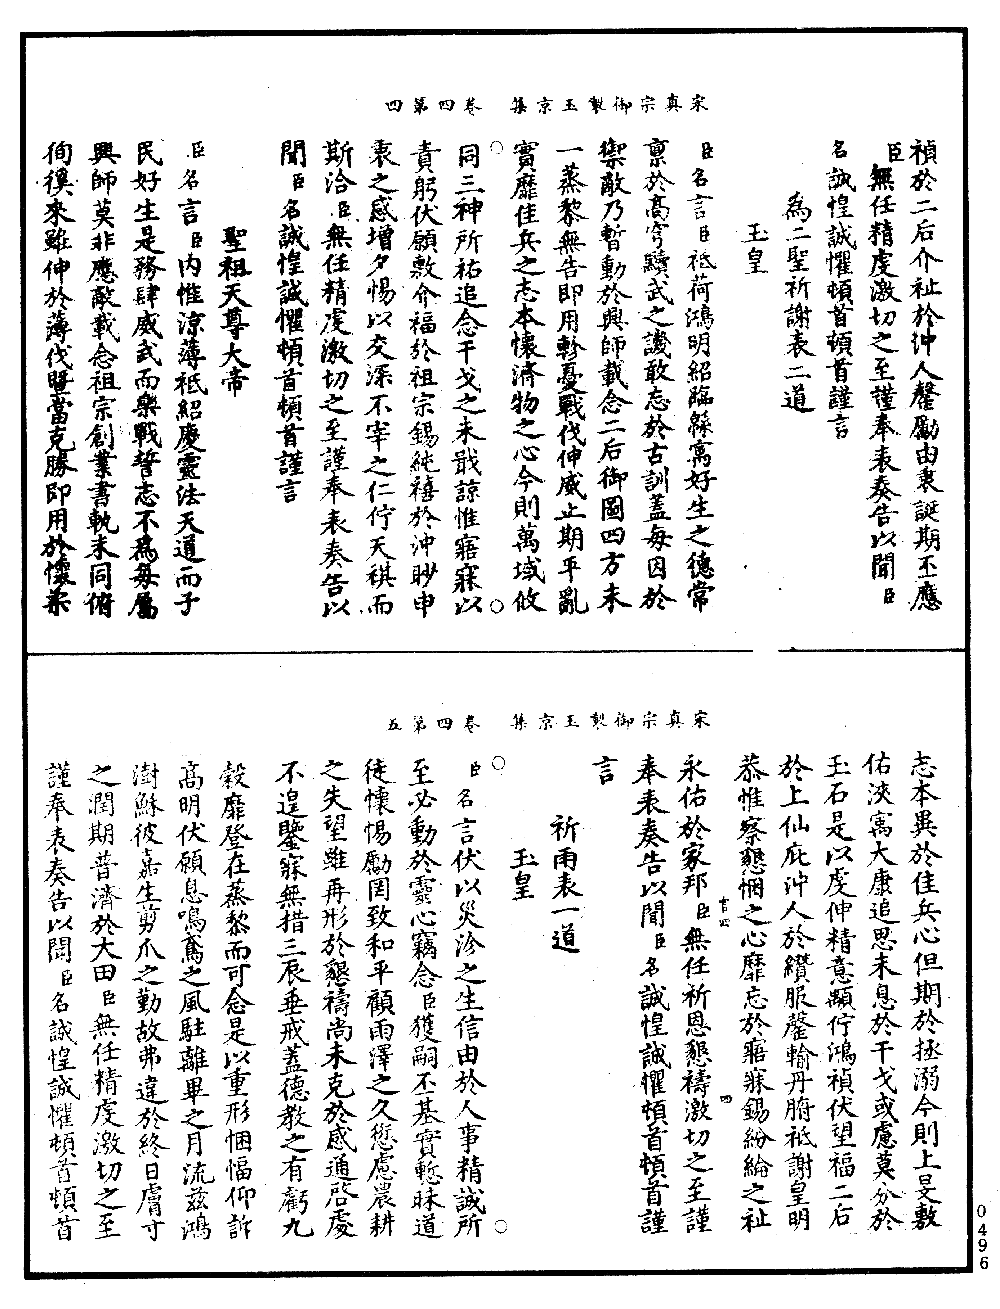 宋真宗御製玉京集　卷四第四
禎於二后介祉於沖人罄勵由衷誕期丕應
臣無任精虔激切之至謹奉表奏告以聞臣
名誠惶誠懼頓首頓首謹言
為二聖祈謝表二道
玉皇
臣名言臣祗荷鴻明紹臨緜㝢好生之德常
稟於高穹黷武之譏敢忘於古訓蓋每因於
禦敵乃暫動於興師載念二后御圖四方未
一蒸黎無告即用軫憂戰伐伸威止期平亂
實靡佳兵之志本懷濟物之心今則萬域攸
同三神所祐追念干戈之未戢諒惟寤寐以
責躬伏願敷介福於祖宗錫純禧於沖眇申
衷之感增夕惕以交深不宰之仁佇天祺而
斯洽臣無任精虔激切之至謹奉表奏告以
聞臣名誠惶誠懼頓首頓首謹言
聖祖天尊大帝
臣名言臣內惟涼薄祗紹慶靈法天道而子
民好生是務肆威武而樂戰誓志不為每屬
興師莫非應敵載念祖宗創業書軌未同俯
徇徯來雖伸於薄伐暨當克勝即用於懷柔
宋真宗御製玉京集　卷四第五
志本異於佳兵心但期於拯溺今則上旻敷
佑浹㝢大康追思未息於干戈或慮莫分於
玉石是以虔伸精意顒佇鴻禎伏望福二后
於上仙庇沖人於纘服罄輸丹腑祗謝皇明
恭惟察懇悃之心靡忘於寤寐錫紛綸之祉
永佑於家邦臣無任祈恩懇禱激切之至謹
奉表奏告以聞臣名誠惶誠懼頓首頓首謹
言
祈雨表一道
玉皇
臣名言伏以災沴之生信由於人事精誠所
至必動於靈心竊念臣獲嗣丕基實慙昧道
徒懷惕勵罔致和平顧雨澤之久愆慮農耕
之失望雖再形於懇禱尚未克於感通啓處
不遑鑒寐無措三辰垂戒蓋德教之有虧九
穀靡登在蒸黎而可念是以重形悃愊仰訴
高明伏願息鳴鳶之風駐離畢之月流茲鴻
澍穌彼嘉生剪爪之勤故弗違於終日膚寸
之潤期普濟於大田臣無任精虔激切之至
謹奉表奏告以聞臣名誠惶誠懼頓首頓首
四
0496